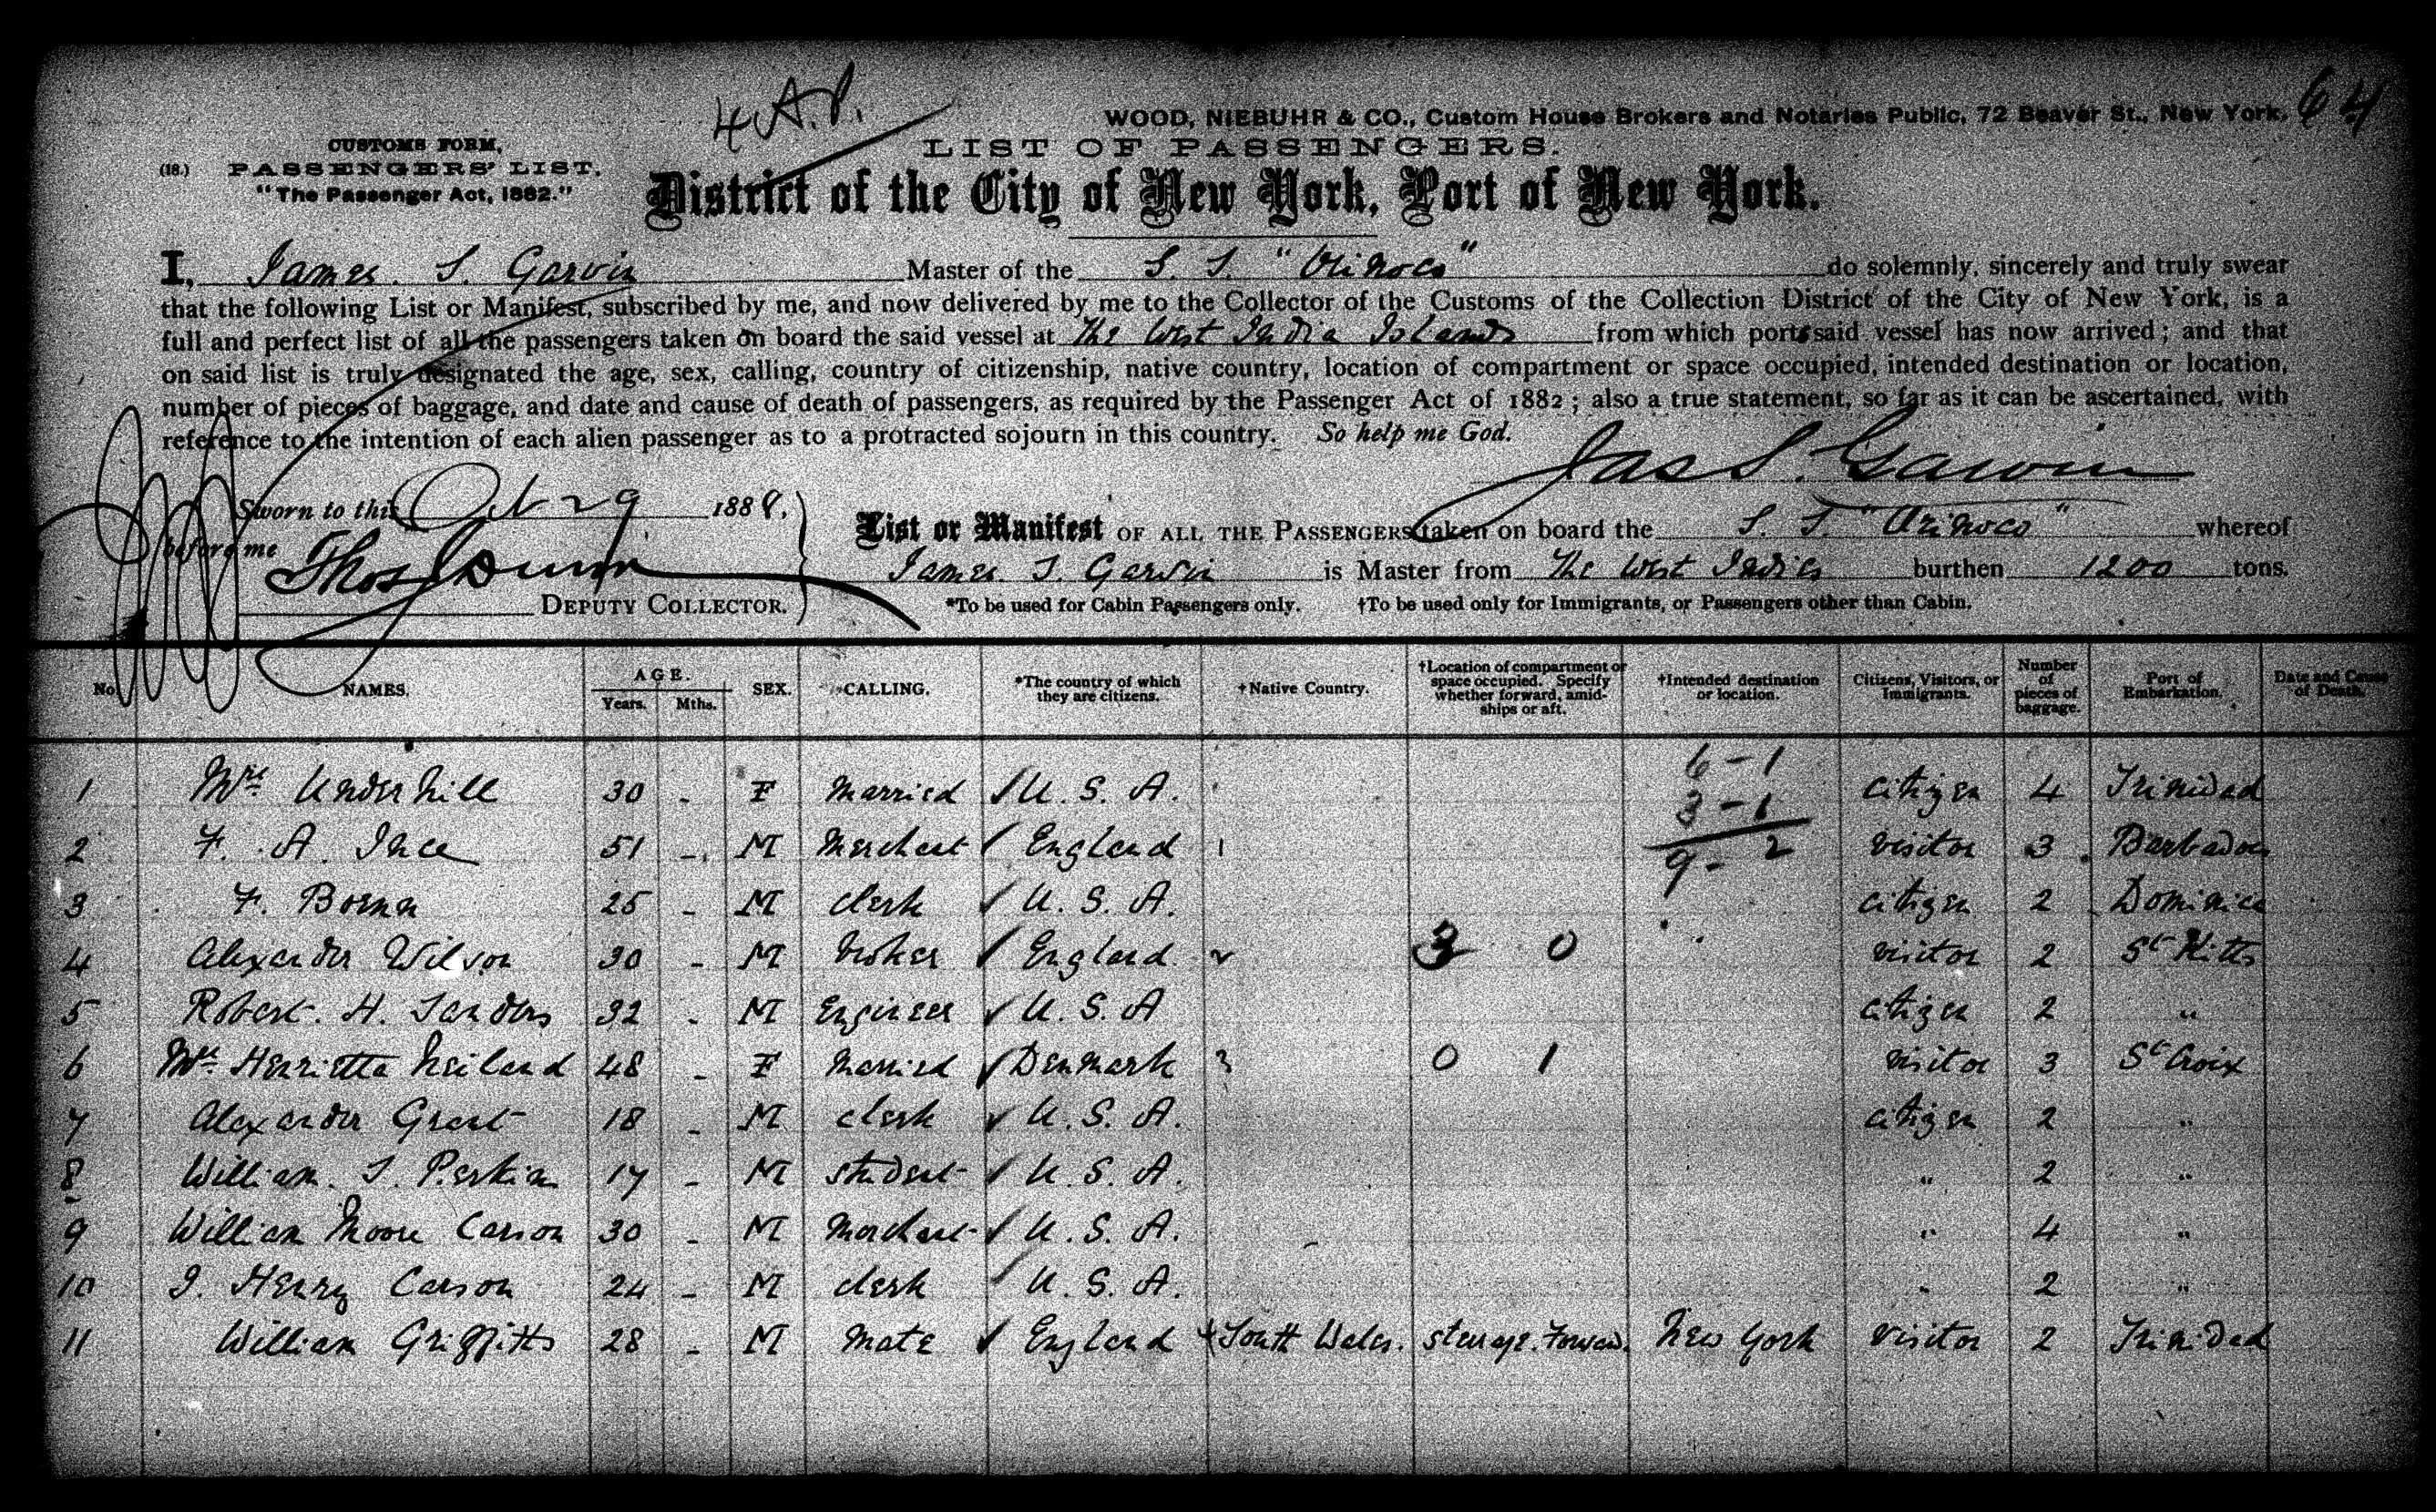 4 A.P.
WOOD, NIEBUHR & CO., Custom House Brokers and Notaries Public, 72 Beaver St., New York. 64
CUSTOMS FORM,
LIST OF PASSENGERS.
(18.) PASSENGERS' LIST.
"The Passenger Act, 1882."
District of the City of New York, Port of New York.
I, James. S. Garvin Master of the S. S. "Orinoco" do solemnly, sincerely and truly swear
that the following List or Manifest, subscribed by me, and now delivered by me to the Collector of the Customs of the Collection District of the City of New York, is a
full and perfect list of all the passengers taken on board the said vessel at The West India Islands from which ports said vessel has now arrived; and that
on said list is truly designated the age, sex, calling, country of citizenship, native country, location of compartment or space occupied, intended destination or location,
number of pieces of baggage, and date and cause of death of passengers, as required by the Passenger Act of 1882; also a true statement, so far as it can be ascertained, with
reference to the intention of each alien passenger as to a protracted sojourn in this country. So help me God.
Jas S. Garvin
Sworn to this Oct 29 1888.
List or Manifest OF ALL THE PASSENGERS taken on board the S. S. "Orinoco" whereof
before me Thos
James. S. Garvin is Master from The West Indies burthen 1200 tons.
DEPUTY COLLECTOR.
*To be used for Cabin Passengers only. †To be used only for Immigrants, or Passengers other than Cabin.
No. NAMES. AGE. Years. Mths. SEX. CALLING. *The country of which they are citizens. †Native Country. †Location of compartment or space occupied. Specify whether forward, amidships or aft. †Intended destination or location. Citizens, Visitors, or Immigrants. Number of pieces of baggage. Port of Embarkation. Date and Cause of Death.
6 - 1
1 Mrs. Underhill 30 - F Married ✓ U. S. A. citizen 4 Trinidad
3 - 1
2 F. A. Ince 51 - M Merchant ✓ England 1 visitor 3 Barbados
9 - 2
3 F. Borna 25 - M clerk ✓ U. S. A. citizen 2 Dominica
4 Alexander Wilson 30 - M broker ✓ England 2 3 0 visitor 2 St Kitts
5 Robert. H. Sanders 32 - M Engineer ✓ U. S. A citizen 2 "
6 Mrs. Henrietta Neiland 48 - F Married ✓ Denmark 3 0 1 visitor 3 St Croix
7 Alexander Grant 18 - M clerk ✓ U. S. A. citizen 2 "
8 William. S. Perkin 17 - M student ✓ U. S. A. " 2 "
9 William Moore Carson 30 - M Merchant ✓ U. S. A. " 4 "
10 J. Henry Carson 24 - M clerk ✓ U. S. A. " 2 "
11 William Griffitts 28 - M Mate ✓ England 4 South Wales. Steerage. Forward. New York visitor 2 Trinidad